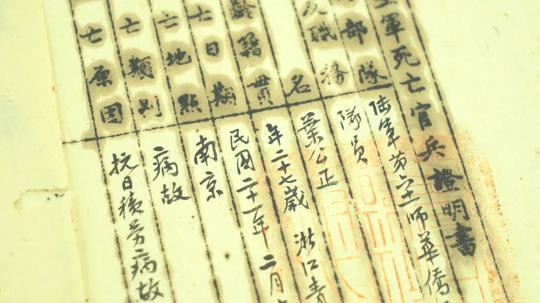 軍死亡官兵證明書
部隊 陸軍第 師華僑
職務 隊員
名 葉公正
齡籍貫 年二十七歲 浙江青
亡日期 民國二十一年二月
亡地點 南京
亡類別 病故
亡原因 抗日積勞病故